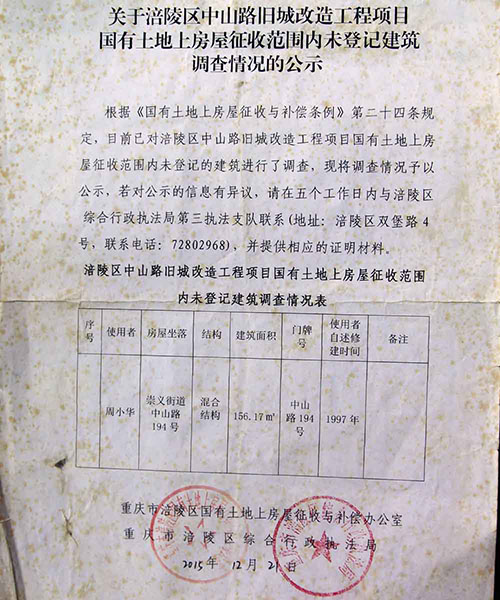 关于涪陵区中山路旧城改造工程项目
国有土地上房屋征收范围内未登记建筑
调查情况的公示
根据《国有土地上房屋征收与补偿条例》第二十四条规
定，目前已对涪陵区中山路旧城改造工程项目国有土地上房
屋征收范围内未登记的建筑进行了调查，现将调查情况予以
公示，若对公示的信息有异议，请在五个工作日内与涪陵区
综合行政执法局第三执法支队联系(地址：涪陵区双堡路 4
号，联系电话：72802968)，并提供相应的证明材料。
涪陵区中山路旧城改造工程项目国有土地上房屋征收范围
内未登记建筑调查情况表
序号 使用者 房屋坐落 结构 建筑面积 门牌号 使用者自述修建时间 备注
周小华 崇义街道中山路194号 混合结构 156.17㎡ 中山路194号 1997年
重庆市涪陵区国有土地上房屋征收与补偿办公室
重庆市涪陵区综合行政执法局
2015年12月21日